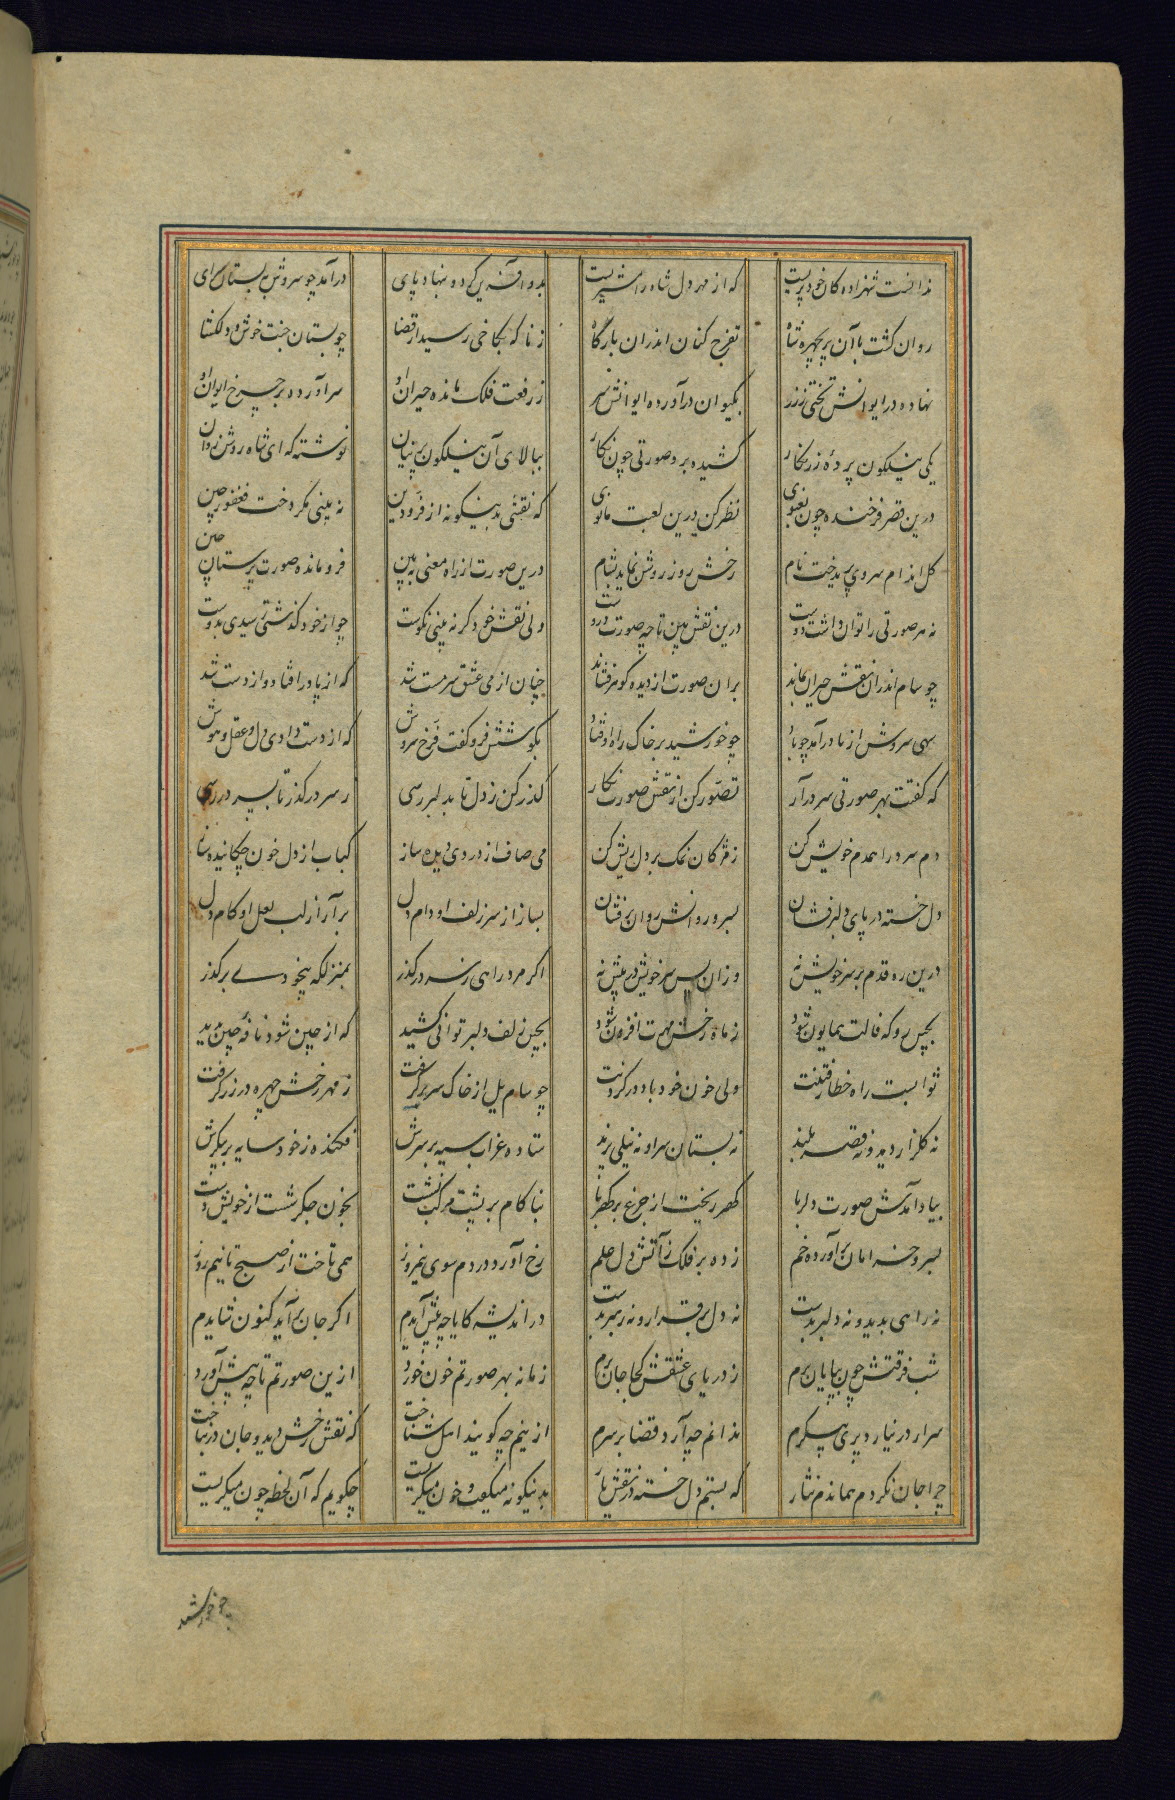 ندانست شهزاده کان خودپرست که از مهر دل شاه را مشتریست بدو آفرین کرد و بنهاد پای درآمد چو سروش ببستان سرای
روان گشت با آن پریچهره شاه تفرج کنان اندران بارگاه زناگه بکاخی رسید از قضا چو بستان جنت خوش و دلگشا
نهاده در ایوانش تختی ز زر بکیوان درآورده ایوانش سر ز رفعت فلک مانده حیران او سر آورده بر چرخ ایوان او
یکی نیلگون پرده زرنگار کشیده برو صورتی چون نگار ببالای آن نیلگون پرنیان نوشته که ای شاه روشن روان
درین قصر فرخنده چون بغنوی نظر کن درین لعبت مانوی که نقشی بدینگونه از فرودین نه بینی مگر دخت فغفور چین
گل اندام سروی پریدخت نام رخش روز روشن نماید بشام درین صورت از راه معنی به بین فرو مانده صورت پرستان چین
نه هر صورتی را توان داشت دوست درین نقش بین تا چه صورت دروست ولی نقش خود گر نه بینی نکوست چو از خود گذشتی رسیدی بدوست
چو سام اندران نقش حیران بماند بران صورت از دیده گوهر فشاند چنان از می عشق سرمست شد که از پا درافتاد و از دست شد
سهی سروش از پا درآمد چو باد چو خورشید بر خاک راه اوفتاد بگوشش فرو گفت فرخ سروش که از دست دادی دل و عقل و هوش
که گفتت بهر صورتی سر درآر تصور کن از نقش صورت نگار گذر کن ز دل تا بدلبر رسی ز سر درگذر تا بسر در رسی
دم سرد را همدم خویش کن ز مژگان نمک بر دل ریش کن می صاف از دردی دیده ساز کباب از دل خون چکانیده ساز
دل خسته در پای دلبر فشان بسرو روانش روان برفشان بساز از سر زلف او دام دل برآر از لب لعل او کام دل
درین ره قدم بر سر خویش نه وزان پس سر خویش در پیش نه اگر مرد راهی ز سر درگذر بمنزلگه بیخودی برگذر
بچین رو که فالت همایون شود ز ماه رخش مهرت افزون شود بچین زلف دلبر توانی کشید که از چین شود نافه چین پدید
ثوابست راه خطا رفتنت ولی خون خود باد در گردنت چو سام یل از خاک سر برگرفت ز مهر رخش چهره در زر گرفت
نه گلزار دید و نه قصر بلند نه بستان سرا و نه نیلی پرند ستاده غراب سیه بر سرش فکنده ز خود سایه بر پیکرش
بیاد آمدش صورت دلربا گهر ریخت از جزع بر کهربا بناکام بر پشت مرکب نشست بخون جگر شست از خویش دست
بسرو خرامان برآورده خم زده بر فلک ز آتش دل علم رخ آورد در دم سوی نیمروز همی تاخت از صبح تا نیم روز
نه راهی پدید و نه دلبر بدست نه دل برقرار و نه رهبر بدست در اندیشه کایا چه پیش آیدم اگر جان برآید کنون شایدم
شب فرقتش چون بپایان برم ز دریای عشقش کجا جان برم زمانه بهر صورتم خون خورد ازین صورتم تا چه پیش آورد
سر ار در نیارد پری پیکرم ندانم چه آرد قضا بر سرم ازینم چه گویند اهل شناخت که نقش رخش دید و جان در نباخت
چرا جان نکردم هماندم نثار که بستم دل خسته در نقش یار بدینگونه میگفت و خون میگریست چگویم که آن لحظه چون میگریست
چو خورشید